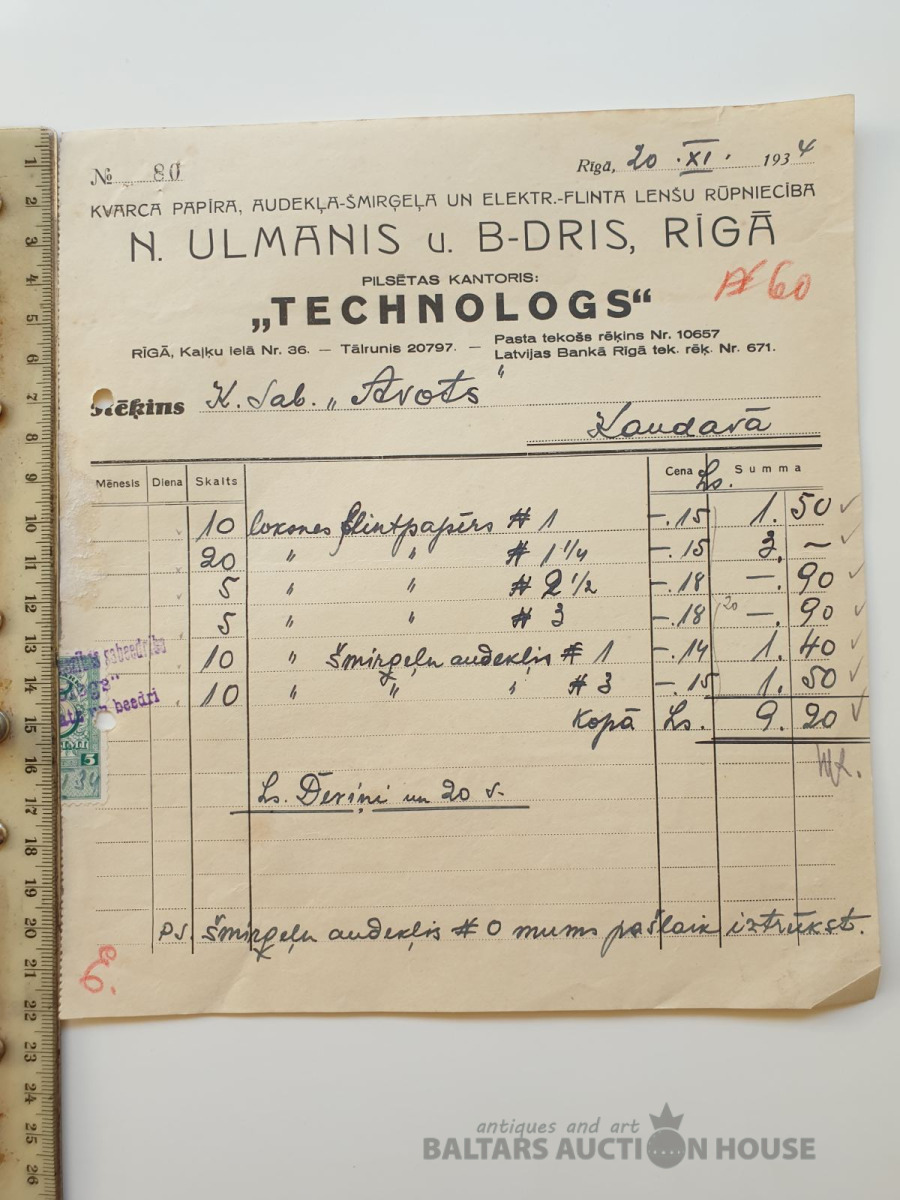 № 80
Rīgā, 20. XI. 1934
KVARCA PAPĪRA, AUDEKĻA-ŠMIRĢEĻA UN ELEKTR.-FLINTA LENŠU RŪPNIECĪBA
N. ULMANIS u. B-DRIS, RĪGĀ
PILSĒTAS KANTORIS:
„TECHNOLOGS“
60
RĪGĀ, Kaļķu ielā Nr. 36. — Tālrunis 20797. —
Pasta tekošs rēķins Nr. 10657
Latvijas Bankā Rīgā tek. rēķ. Nr. 671.
Rēķins K. Sab. „Avots“
Kandavā
Mēnesis Diena Skaits Cena Ls. Summa
10 loksnes flintpapīrs # 1 —.15 1. 50
20 " " # 1 1/4 —.15 3. —
5 " " # 2 1/2 —.18 —. 90
5 " " # 3 —.18 20 —. 90
10 " šmirģeļu audekļis # 1 —.14 1. 40
10 " " " # 3 —.15 1. 50
Kopā Ls. 9. 20
sabeedrība
beedri
5
34
Ls. Deviņi un 20 s.
PS šmirģeļu audekļis # 0 mums pašlaik iztrūkst.
1
2
3
4
5
6
7
8
9
10
11
12
13
14
15
16
17
18
19
20
21
22
23
24
25
26
antiques and art
BALTARS AUCTION HOUSE